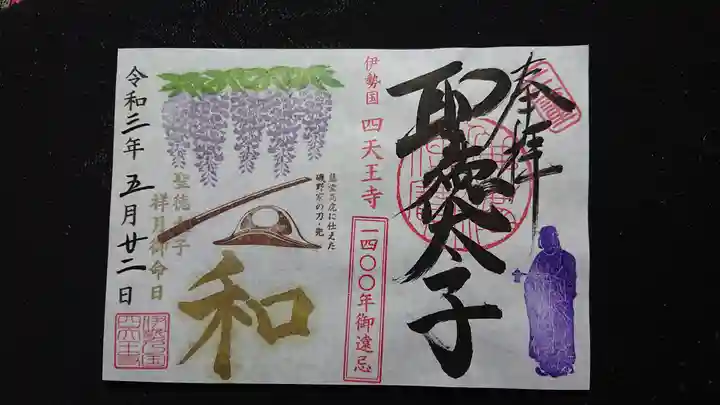 奉拝
聖徳太子
伊勢国 四天王寺
一四〇〇年御遠忌
藤堂高虎に仕えた
磯野家の刀・兜
和
聖徳太子
祥月御命日
令和三年 五月廿二日